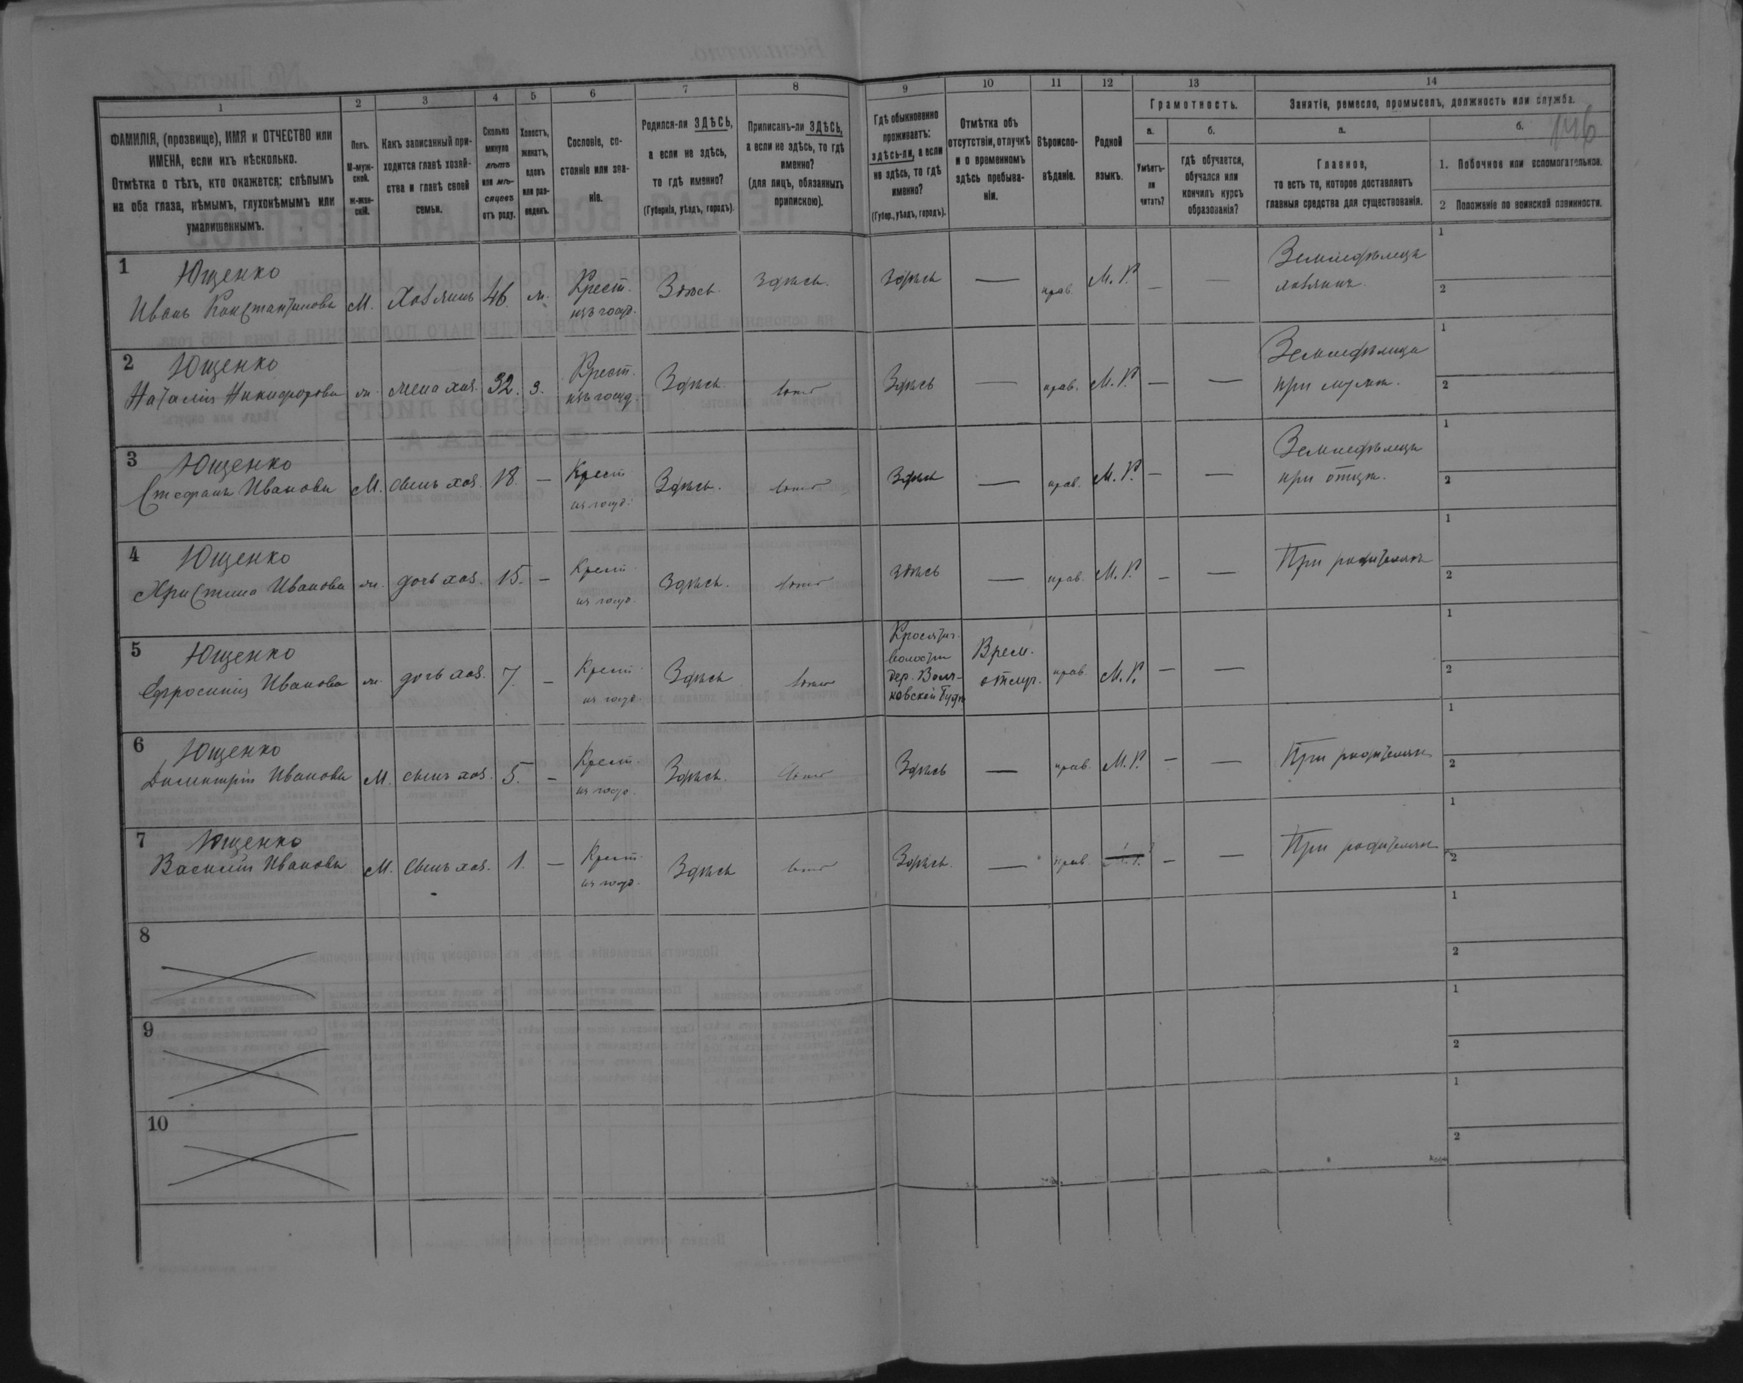 1 2 3 4 5 6 7 8 9 10 11 12 13 14
ФАМИЛІЯ, (прозвище), ИМЯ и ОТЧЕСТВО или
ИМЕНА, если ихъ нѣсколько.
Отмѣтка о тѣхъ, кто окажется: слѣпымъ
на оба глаза, нѣмымъ, глухонѣмымъ или
умалишеннымъ.
Полъ.
М-муж-
ской.
ж-жен-
скій.
Какъ записанный при-
ходится главѣ хозяй-
ства и главѣ своей
семьи.
Сколько
минуло
лѣтъ
или мѣ-
сяцевъ
отъ роду.
Холостъ,
женатъ,
вдовъ
или раз-
веденъ.
Сословіе, со-
стояніе или зва-
ніе.
Родился-ли ЗДѢСЬ,
а если не здѣсь,
то гдѣ именно?
(Губернія, уѣздъ, городъ).
Приписанъ-ли ЗДѢСЬ,
а если не здѣсь, то гдѣ
именно?
(для лицъ, обязанныхъ
припискою).
Гдѣ обыкновенно
проживаетъ:
здѣсь-ли, а если
не здѣсь, то гдѣ
именно?
(Губер., уѣздъ, городъ).
Отмѣтка объ
отсутствіи, отлучкѣ
и о временномъ
здѣсь пребыва-
ніи.
Вѣроиспо-
вѣданіе.
Родной
языкъ.
Грамотность.
а.
Умѣетъ-
ли
читать?
б.
гдѣ обучается,
обучался или
кончилъ курсъ
образованія?
Занятіе, ремесло, промыселъ, должность или служба.
а.
Главное,
то есть то, которое доставляетъ
главныя средства для существованія.
б.
146
1. Побочное или вспомогательное.
2 Положеніе по воинской повинности.
1 Ющенко
Иванъ Константиновъ М. Хозяинъ 46 ж. Крест. изъ госуд. Здѣсь Здѣсь Здѣсь — прав. М. Р. — — Земледѣлецъ
хозяинъ. 1 2
2 Ющенко
Наталія Никифорова ж. жена хоз. 32. з. Крест. изъ госуд. Здѣсь Здѣсь — прав. М. Р. — — Земледѣлица
при мужѣ. 1 2
3 Ющенко
Стефанъ Ивановъ М. сынъ хоз. 18 — Крест из госуд. Здѣсь. Здѣсь — прав. М. Р. — — Земледѣлецъ
при отцѣ. 1 2
4 Ющенко
Христина Иванова ж. дочь хоз. 15. — Крест из госуд. Здѣсь. Здѣсь — прав. М. Р. — — При родителяхъ 1 2
5 Ющенко
Ефросинія Иванова ж. дочь хоз. 7. — Крест из госуд. Здѣсь
волости
дер.
Врем.
отлуч. прав. М. Р. — — 1 2
6 Ющенко
Димитрій Ивановъ М. сынъ хоз. 5. — Крест. из госуд. Здѣсь. Здѣсь — прав. М. Р. — — При родителяхъ 1 2
7 Ющенко
Василій Ивановъ М. сынъ хоз. 1. — Крест. из госуд. Здѣсь Здѣсь. — прав. — — При родителяхъ 1 2
8 1 2
9 1 2
10 1 2